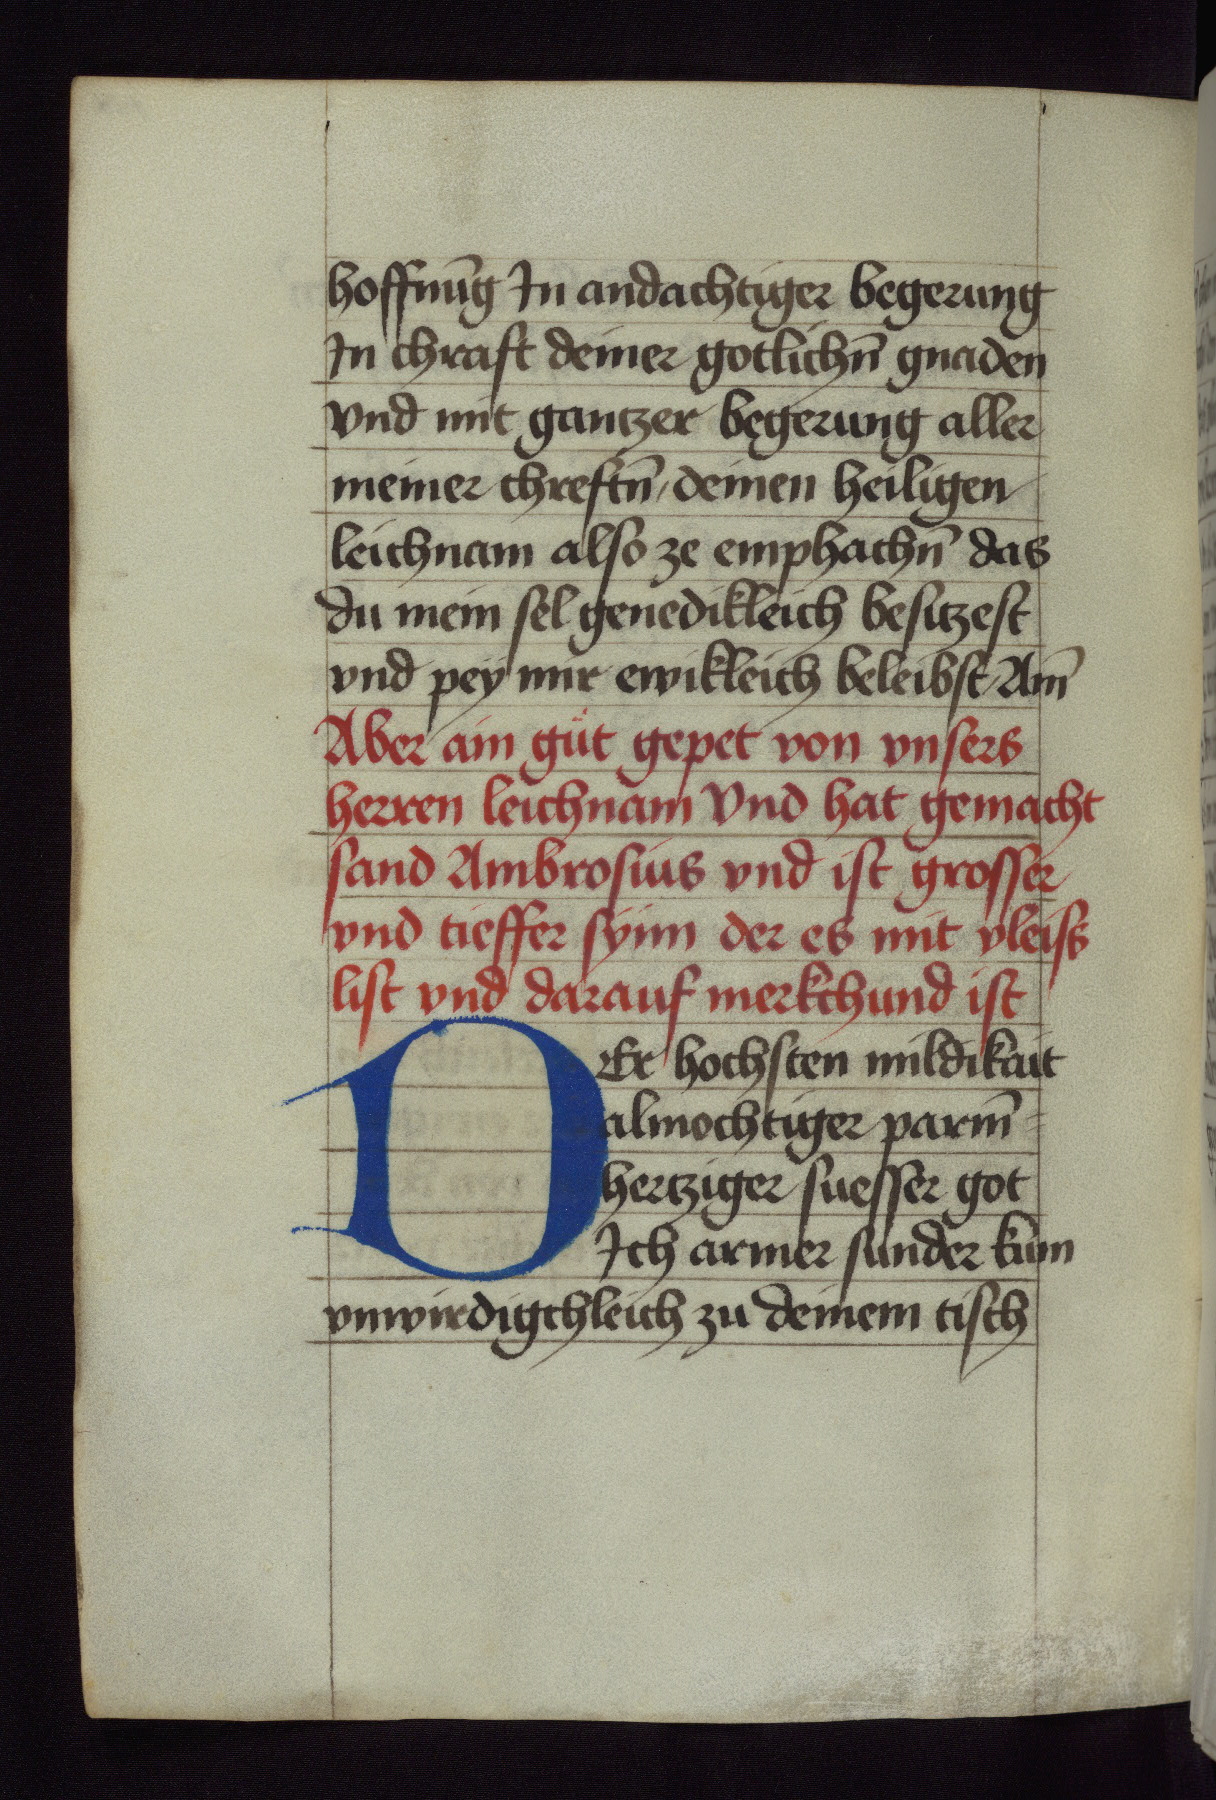 hoffnūg In andachtiger begerung
In chraft deiner gotlichn̄ gnaden
vnd mit gantzer begerung aller
meiner chreftn̄ / deinen heiligen
leichnam also ze emphachn̄ das
du mein sel genedikleich besitzest
vnd pey mir ewikleich beleibst / Am̄
Aber ain gůt gepet von vnsers
herren leichnam Vnd hat gemacht
sand Ambrosius vnd ist grosser
vnd tieffer synn der es mit vleiss
list vnd darauf merkchund ist
DEr hochsten mildikait
almochtiger parm̄=
hertziger suesser got
Ich armer sunder kum
vnwirdigchleich zu deinem tisch